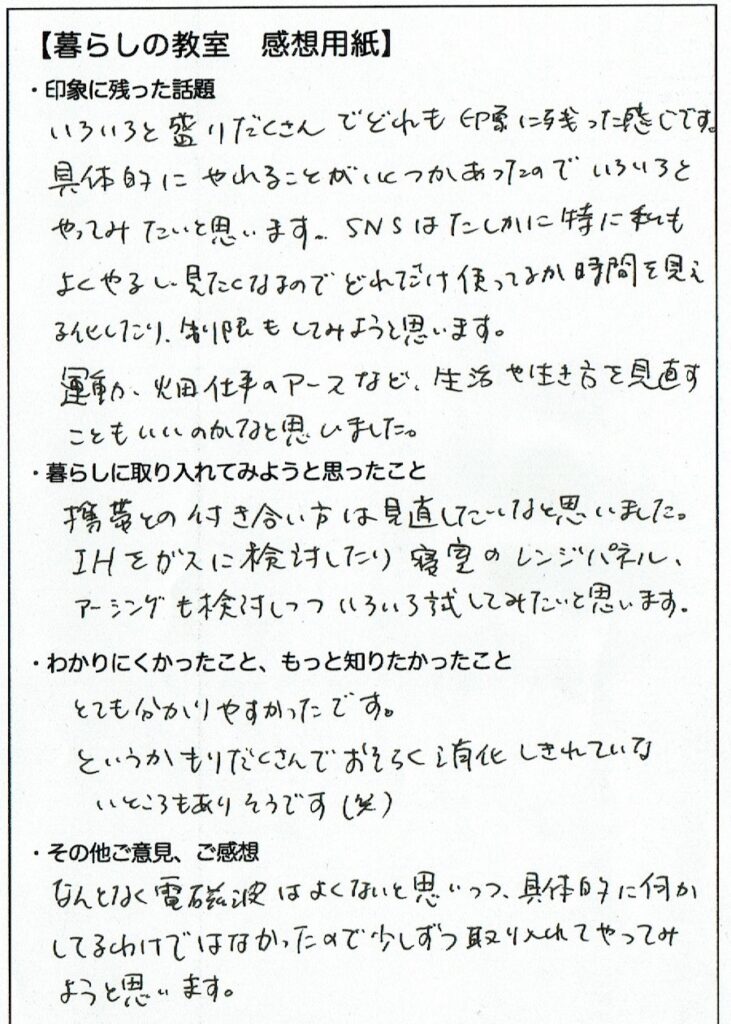 【暮らしの教室　感想用紙】
・印象に残った話題
いろいろと盛りだくさんでどれも印象に残った感じです。
具体的にやれることがいくつかあったのでいろいろと
やってみたいと思います。SNSはたしかに特に私も
よくやるし見たくなるのでどれだけ使ってるか時間を見え
る化したり、制限もしてみようと思います。
運動、畑仕事のアースなど、生活や生き方を見直す
こともいいのかなと思いました。
・暮らしに取り入れてみようと思ったこと
携帯との付き合い方は見直したいなと思いました。
IHをガスに検討したり寝室のレンジパネル、
アーシングも検討しつついろいろ試してみたいと思います。
・わかりにくかったこと、もっと知りたかったこと
とても分かりやすかったです。
というかもりだくさんでおそらく消化しきれていな
いところもありそうです(笑)
・その他ご意見、ご感想
なんとなく電磁波はよくないと思いつつ、具体的に何か
してるわけではなかったので少しずつ取り入れてやってみ
ようと思います。